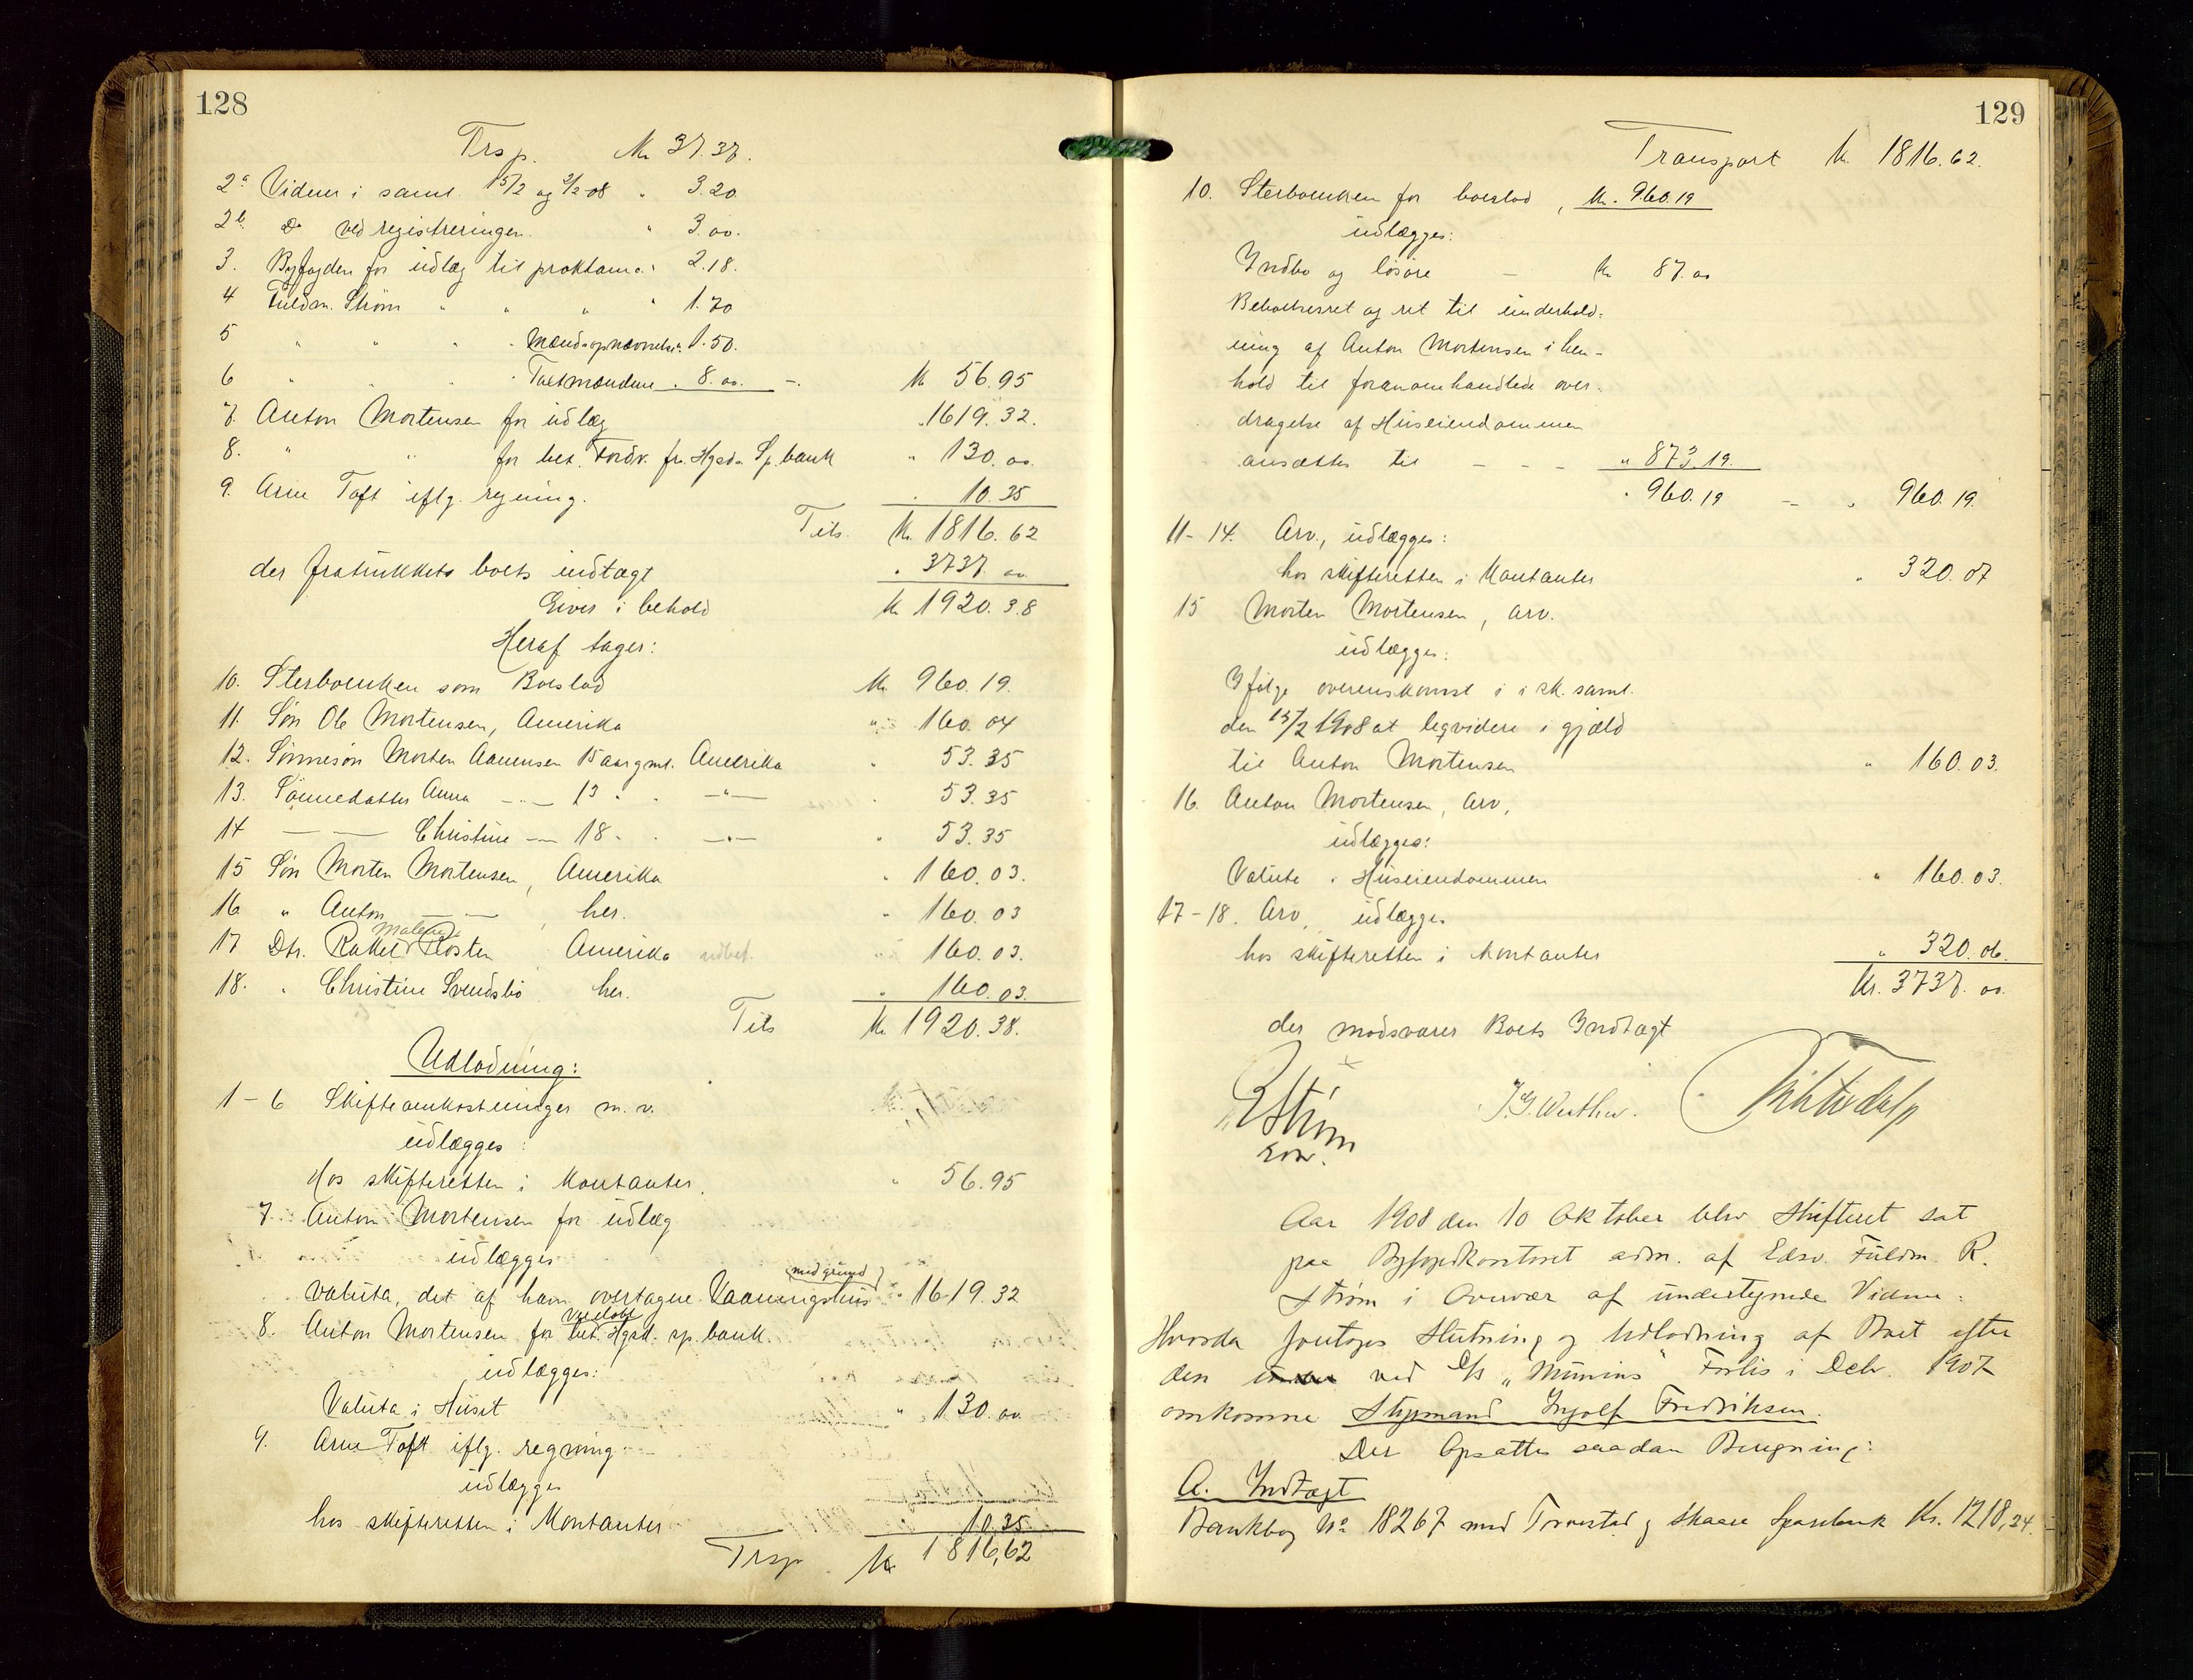 128
Trsp. Kr. 37.37.
2a Vidner i saml. 15/2 og 2/2 08 " 3.20
2b Do ved registreringen. " 3.00.
3. Byfogden for udlæg til proklama. " 2.18.
4 Fuldm. Strøm " " " " 1.70
5 " " " " Mændsopnævnelse " 1.50.
6 " " " " Taxtmændene " 8.00. - Kr 56.95
7. Anton Mortensen for udlæg " 1619.32.
8. " " for bet. Fordr. fr. Hgsds Sp.bank " 130.00.
9. Arne Toft iflg. regning. " 10.35
Tils. Kr. 1816.62
der fratrukkets boets indtægt " 3737.00
Giver i behold Kr 1920.38
Heraf tager:
10. Sterboenken som Boeslod Kr. 960.19.
11. Søn Ole Mortensen, Amerika " 160.04
12. Sønnesøn Morten Aanensen 15 aar gml. Amerika " 53.35
13. Sønnedatter Anna -"- 13 " " -"- " 53.35
14 — — Christine — 18 " " -"- " 53.35
15 Søn Morten Mortensen, Amerika " 160.03.
16 " Anton — — , her. " 160.03
17 Dtr. Rakel Malene Rosten Amerika udbet. " 160.03.
18. " Christine Svendsbø her. " 160.03.
Tils Kr 1920.38.
Udlodning:
1-6 Skifteomkostninger m.v.
udlægges:
Hos skifteretten i Kontanter. " 56.95
7. Anton Mortensen for udlæg
udlægges
valuta, det af ham overtagne Vaaningshus (med grund) " 1619.32
8. Anton Mortensen for bet. Hgsd. sp.bank
udlægges:
Valuta i Huset " 130.00
9. Arne Toft iflg. regning
udlægges
hos skifteretten i Kontanter " 10.35
Trsp. Kr 1816,62
129
Transport Kr. 1816.62.
10. Sterboenken for boeslod, Kr. 960.19
udlægges:
Indbo og løsøre - Kr 87.00
Beboelsesret og ret til underhold=
ning af Anton Mortensen i hen-
hold til foranomhandlede over-
dragelse af Huseiendommen
ansættes til - - - " 873.19.
" 960.19 - " 960.19.
11-14. Arv, udlægges:
hos skifteretten i Kontanter " 320.07
15 Morten Mortensen, arv.
udlægges:
Ifølge overenskomst i sk. saml.
den 15/2 1908 at leqvidere i gjæld
til Anton Mortensen " 160.03.
16. Anton Mortensen, arv,
udlægges:
Valuta i Huseiendommen " 160.03.
17-18. Arv, udlægges
hos skifteretten i Kontanter " 320.06.
Kr. 3737.00.
der modsvarer Boets Indtægt
RStrøm
Edsv.
Aar 1908 den 10 Oktober blev Skifteret sat
paa Byfogdkontoret adm. af Edsv. Fuldm. R.
Strøm i Overvær af undertegnede Vidner.
Hvorda foretoges Slutning og Udlodning af Boet efter
den ved D/S "Munins" Forlis i Decbr. 1907
omkomne Styrmand Ingolf Fredriksen.
Der Opsattes saadan Beregning:
A. Indtægt
Bankbog No 18267 med Torvestad og Skaare Sparebank Kr. 1218,24.